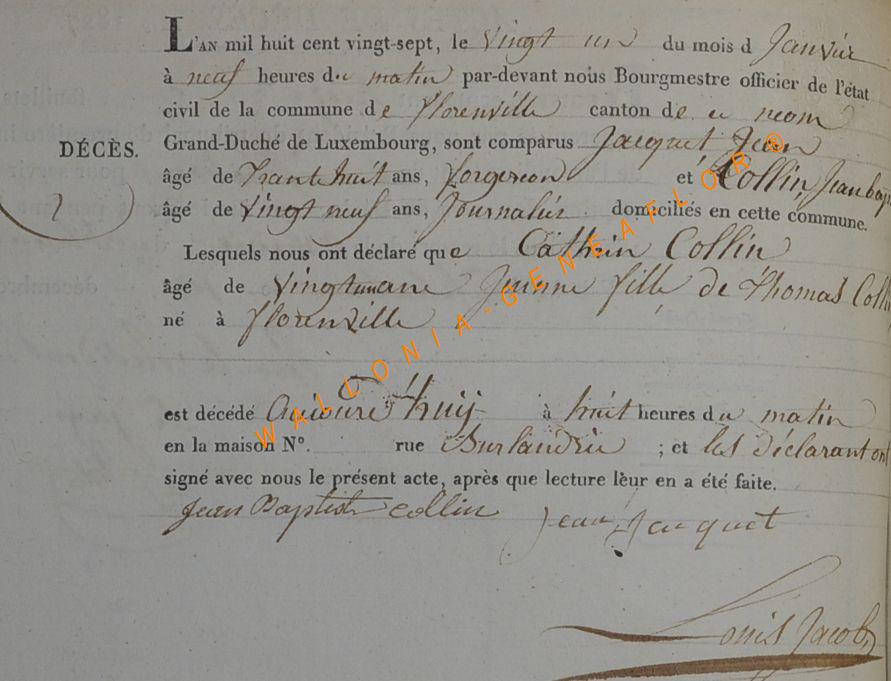 L'AN mil huit cent vingt-sept, le vingt un du mois d Janvier
à neuf heures du matin par-devant nous Bourgmestre officier de l'état
civil de la commune de florenville canton de ce nom
Grand-Duché de Luxembourg, sont comparus Jacquet Jean
DÉCÈS.
âgé de trante huit ans, forgeron et Collin Jean bap
âgé de vingt neuf ans, Journalier domiciliés en cette commune.
2
Lesquels nous ont déclaré que Cathrin Collin
âgé de Jeunne fille de thomas Collin
né à florenville
est décédé à huit heures du matin
en la maison N°. rue ; et les déclarant ont
signé avec nous le présent acte, après que lecture leur en a été faite.
Jean Baptist Collin Jean Jacquet
Louis Jacob
WALLONIA-GENEAFLOR®